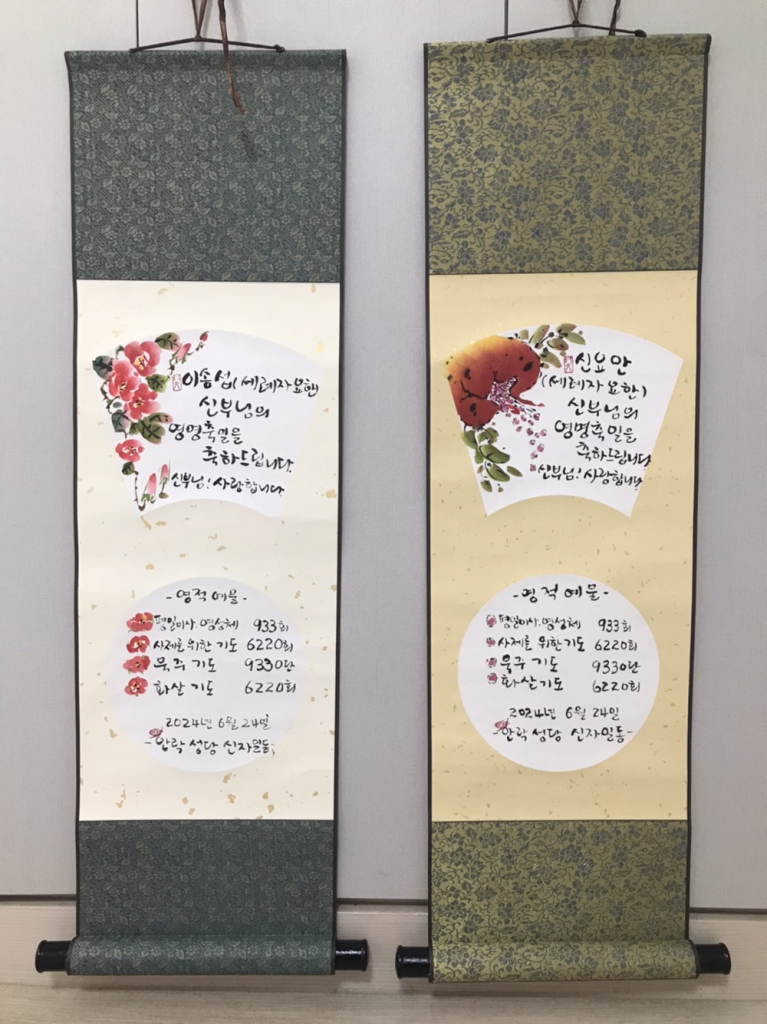 이솜섭(세례자요한)
신부님의
영명축일을
축하드립니다.
신부님! 사랑합니다.
-영적예물-
평일미사.영성체 933회
사제를 위한 기도 6220회
묵주 기도 9330단
화살 기도 6220회
2024년 6월 24일
-안락 성당 신자일동-
신요안
(세례자 요한)
신부님의
영명축일을
축하드립니다
신부님! 사랑합니다.
-영적예물-
평일미사.영성체 933회
사제를 위한 기도 6220회
묵주 기도 9330단
화살 기도 6220회
2024년 6월 24일
-안락 성당 신자일동-